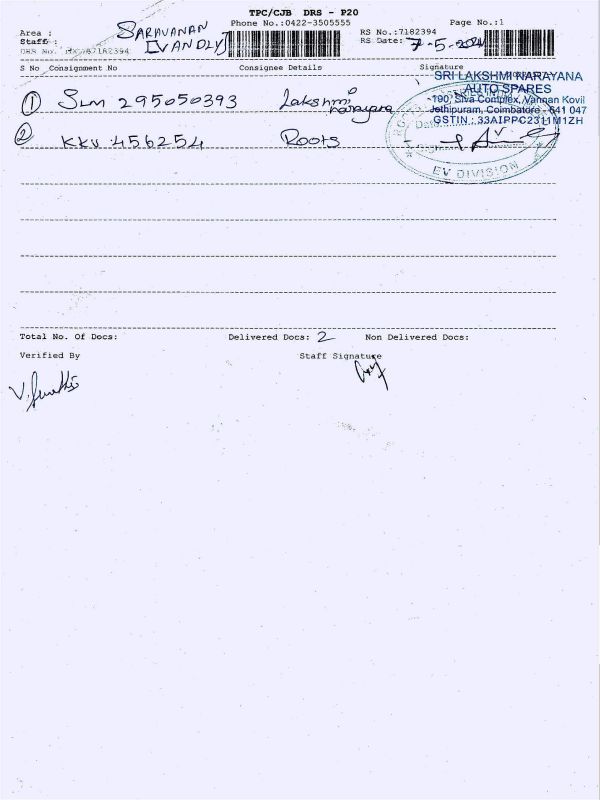 TPC/CJB DRS - P20
Phone No.:0422-3505555
Page No.:1
Area : SARAVANAN
Staff : [VANDLY]
RS No.:7182394
RS Date: 7-5-2024
S No Consignment No Consignee Details Signature
SRI LAKSHMI NARAYANA
AUTO SPARES
190, Siva Complex, Vannan Kovil
Jothipuram, Coimbatore - 641 047
GSTIN : 33AIPPC2311M1ZH
① SLM 295050393 Lakshmi narayana
② KKV 456254 Roots
EV DIVISION
Total No. Of Docs: Delivered Docs: 2 Non Delivered Docs:
Verified By Staff Signature